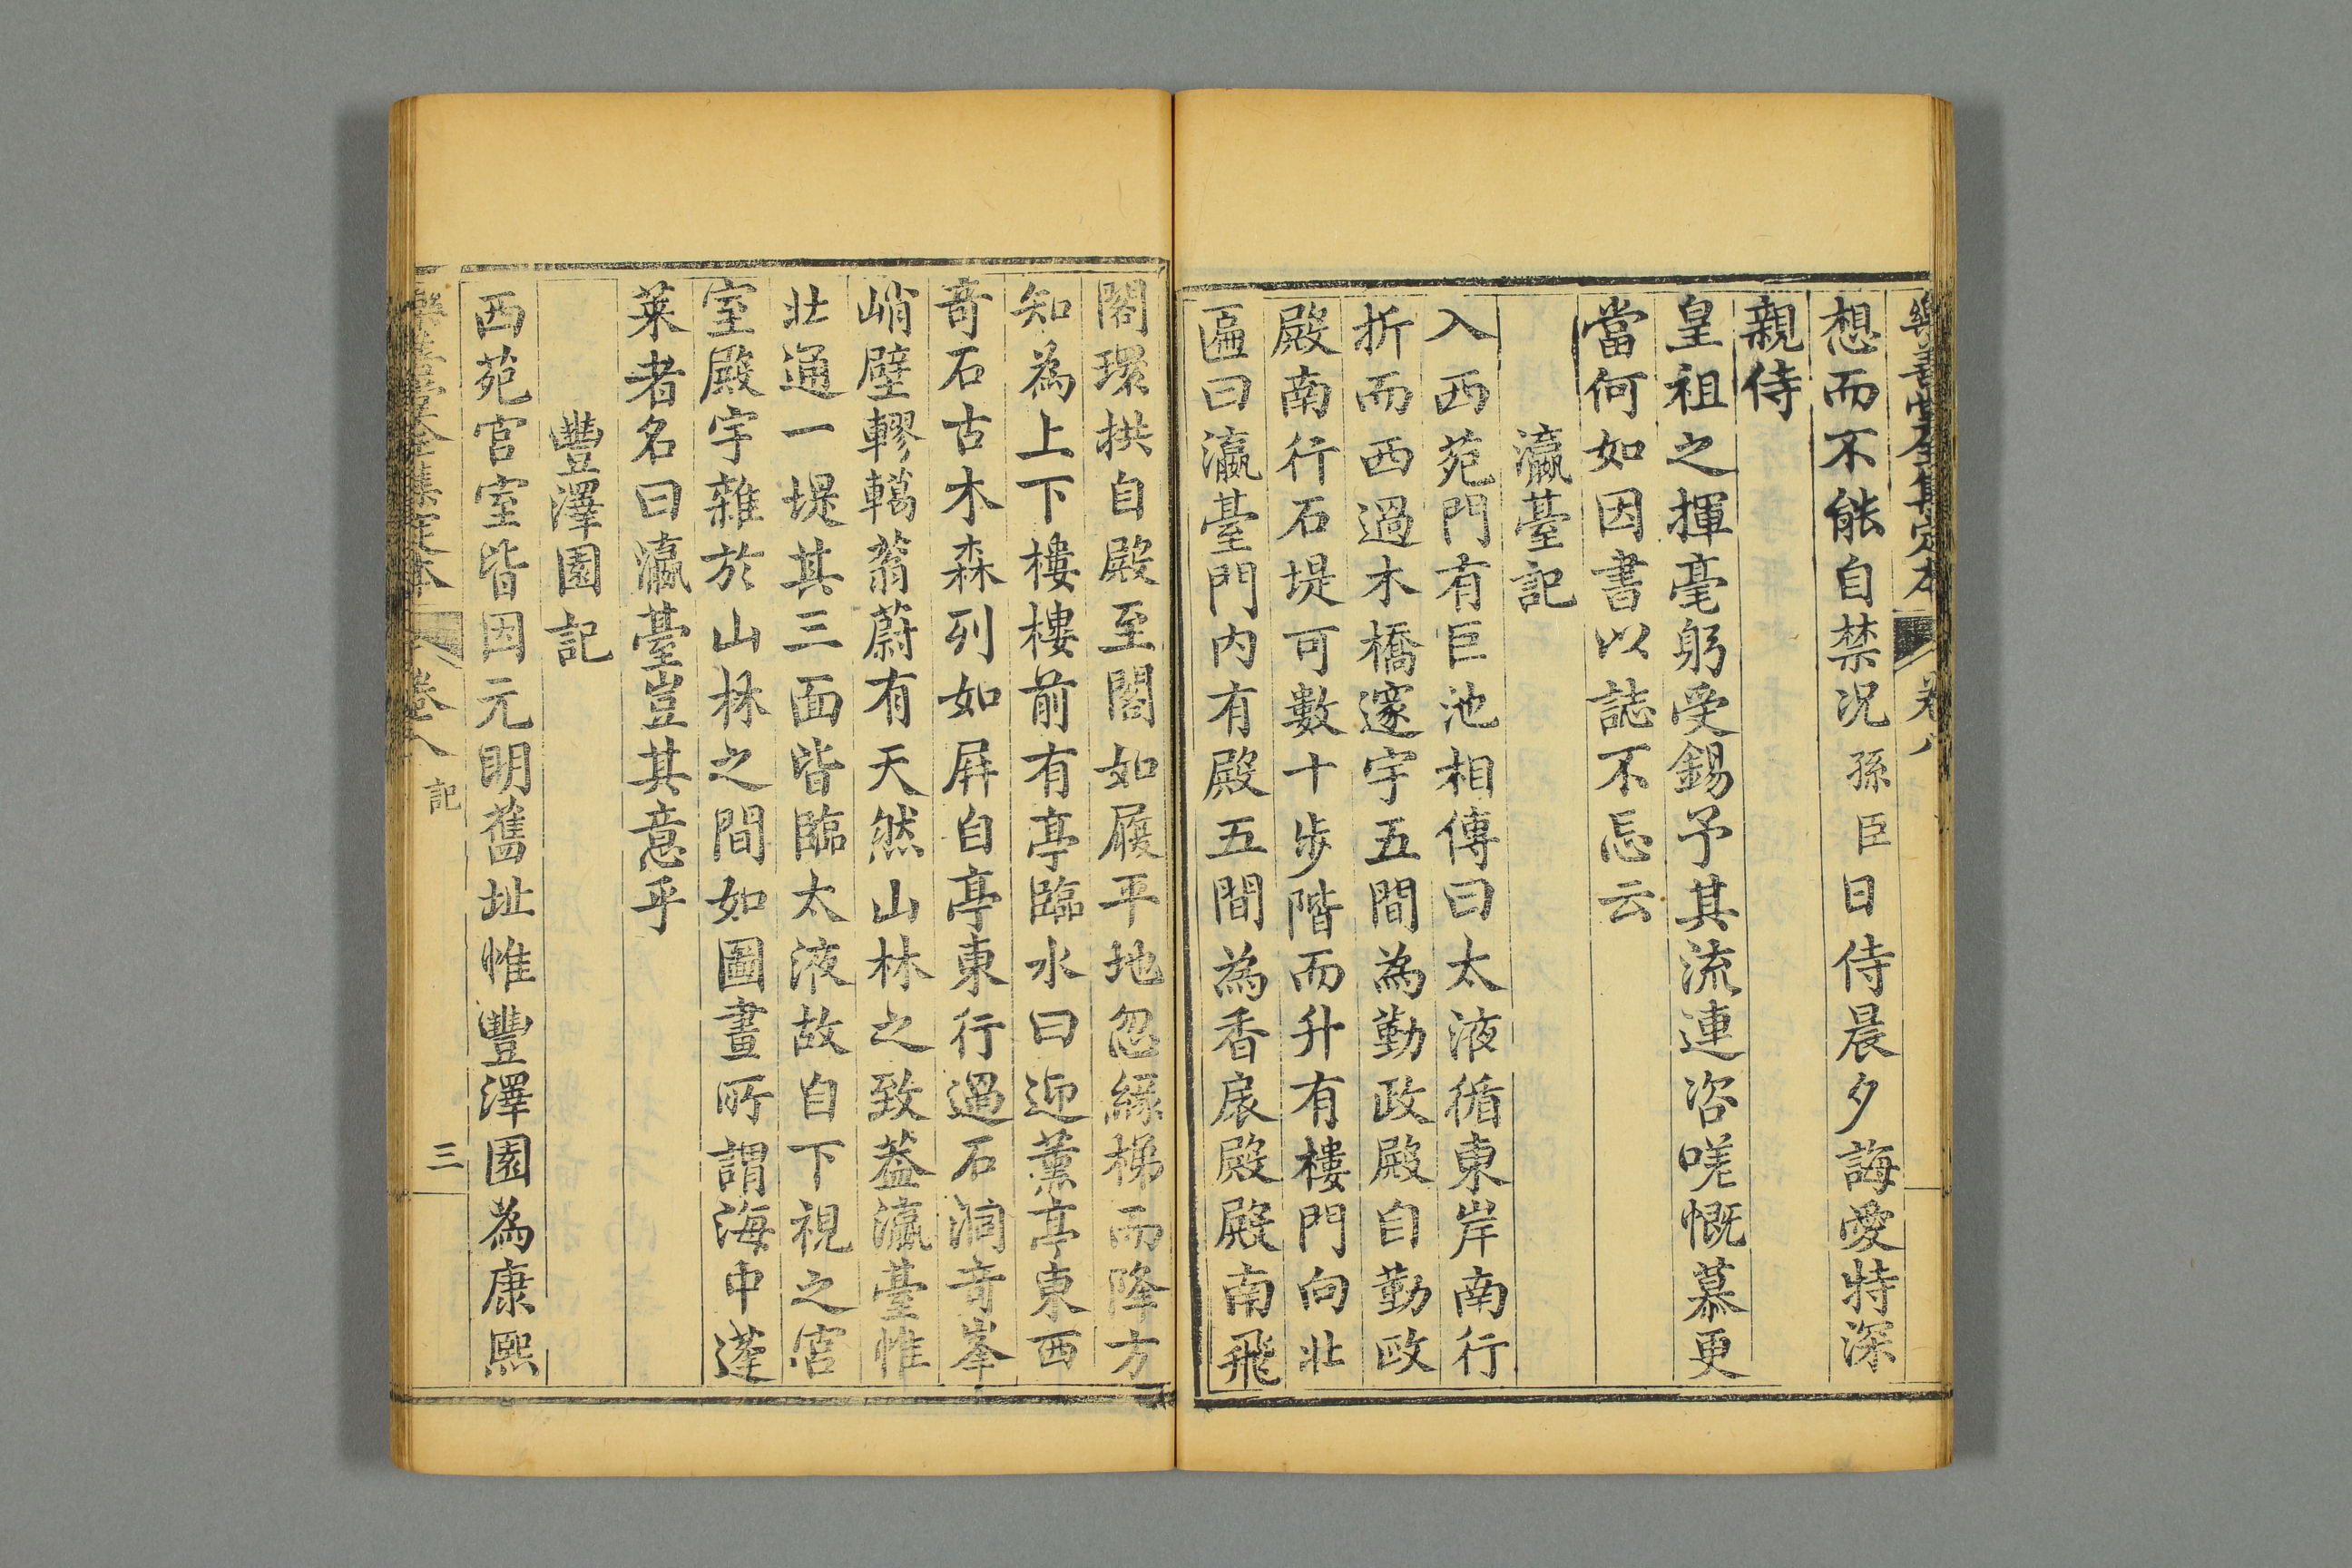 樂善堂全集定本 卷八
想而不能自禁况孫臣日侍晨夕誨愛特深
親侍
皇祖之揮毫躬受錫予其流連咨嗟慨慕更
當何如因書以誌不忘云
瀛臺記
入西苑門有巨池相傳曰太液循東岸南行
折而西過木橋邃宇五間為勤政殿自勤政
殿南行石堤可數十步階而升有樓門向北
匾曰瀛臺門内有殿五間為香扆殿殿南飛
閣環拱自殿至閣如履平地忽緣梯而降方
知為上下樓樓前有亭臨水曰迎薰亭東西
奇石古木森列如屏自亭東行過石洞奇峯
峭壁轇轕蓊蔚有天然山林之致葢瀛臺惟
北通一堤其三面皆臨太液故自下視之宫
室殿宇雜於山林之間如圖畫所謂海中蓬
萊者名曰瀛臺豈其意乎
豐澤園記
西苑宫室皆因元明舊址惟豐澤園為康熙
樂善堂全集定本 卷八 記 三